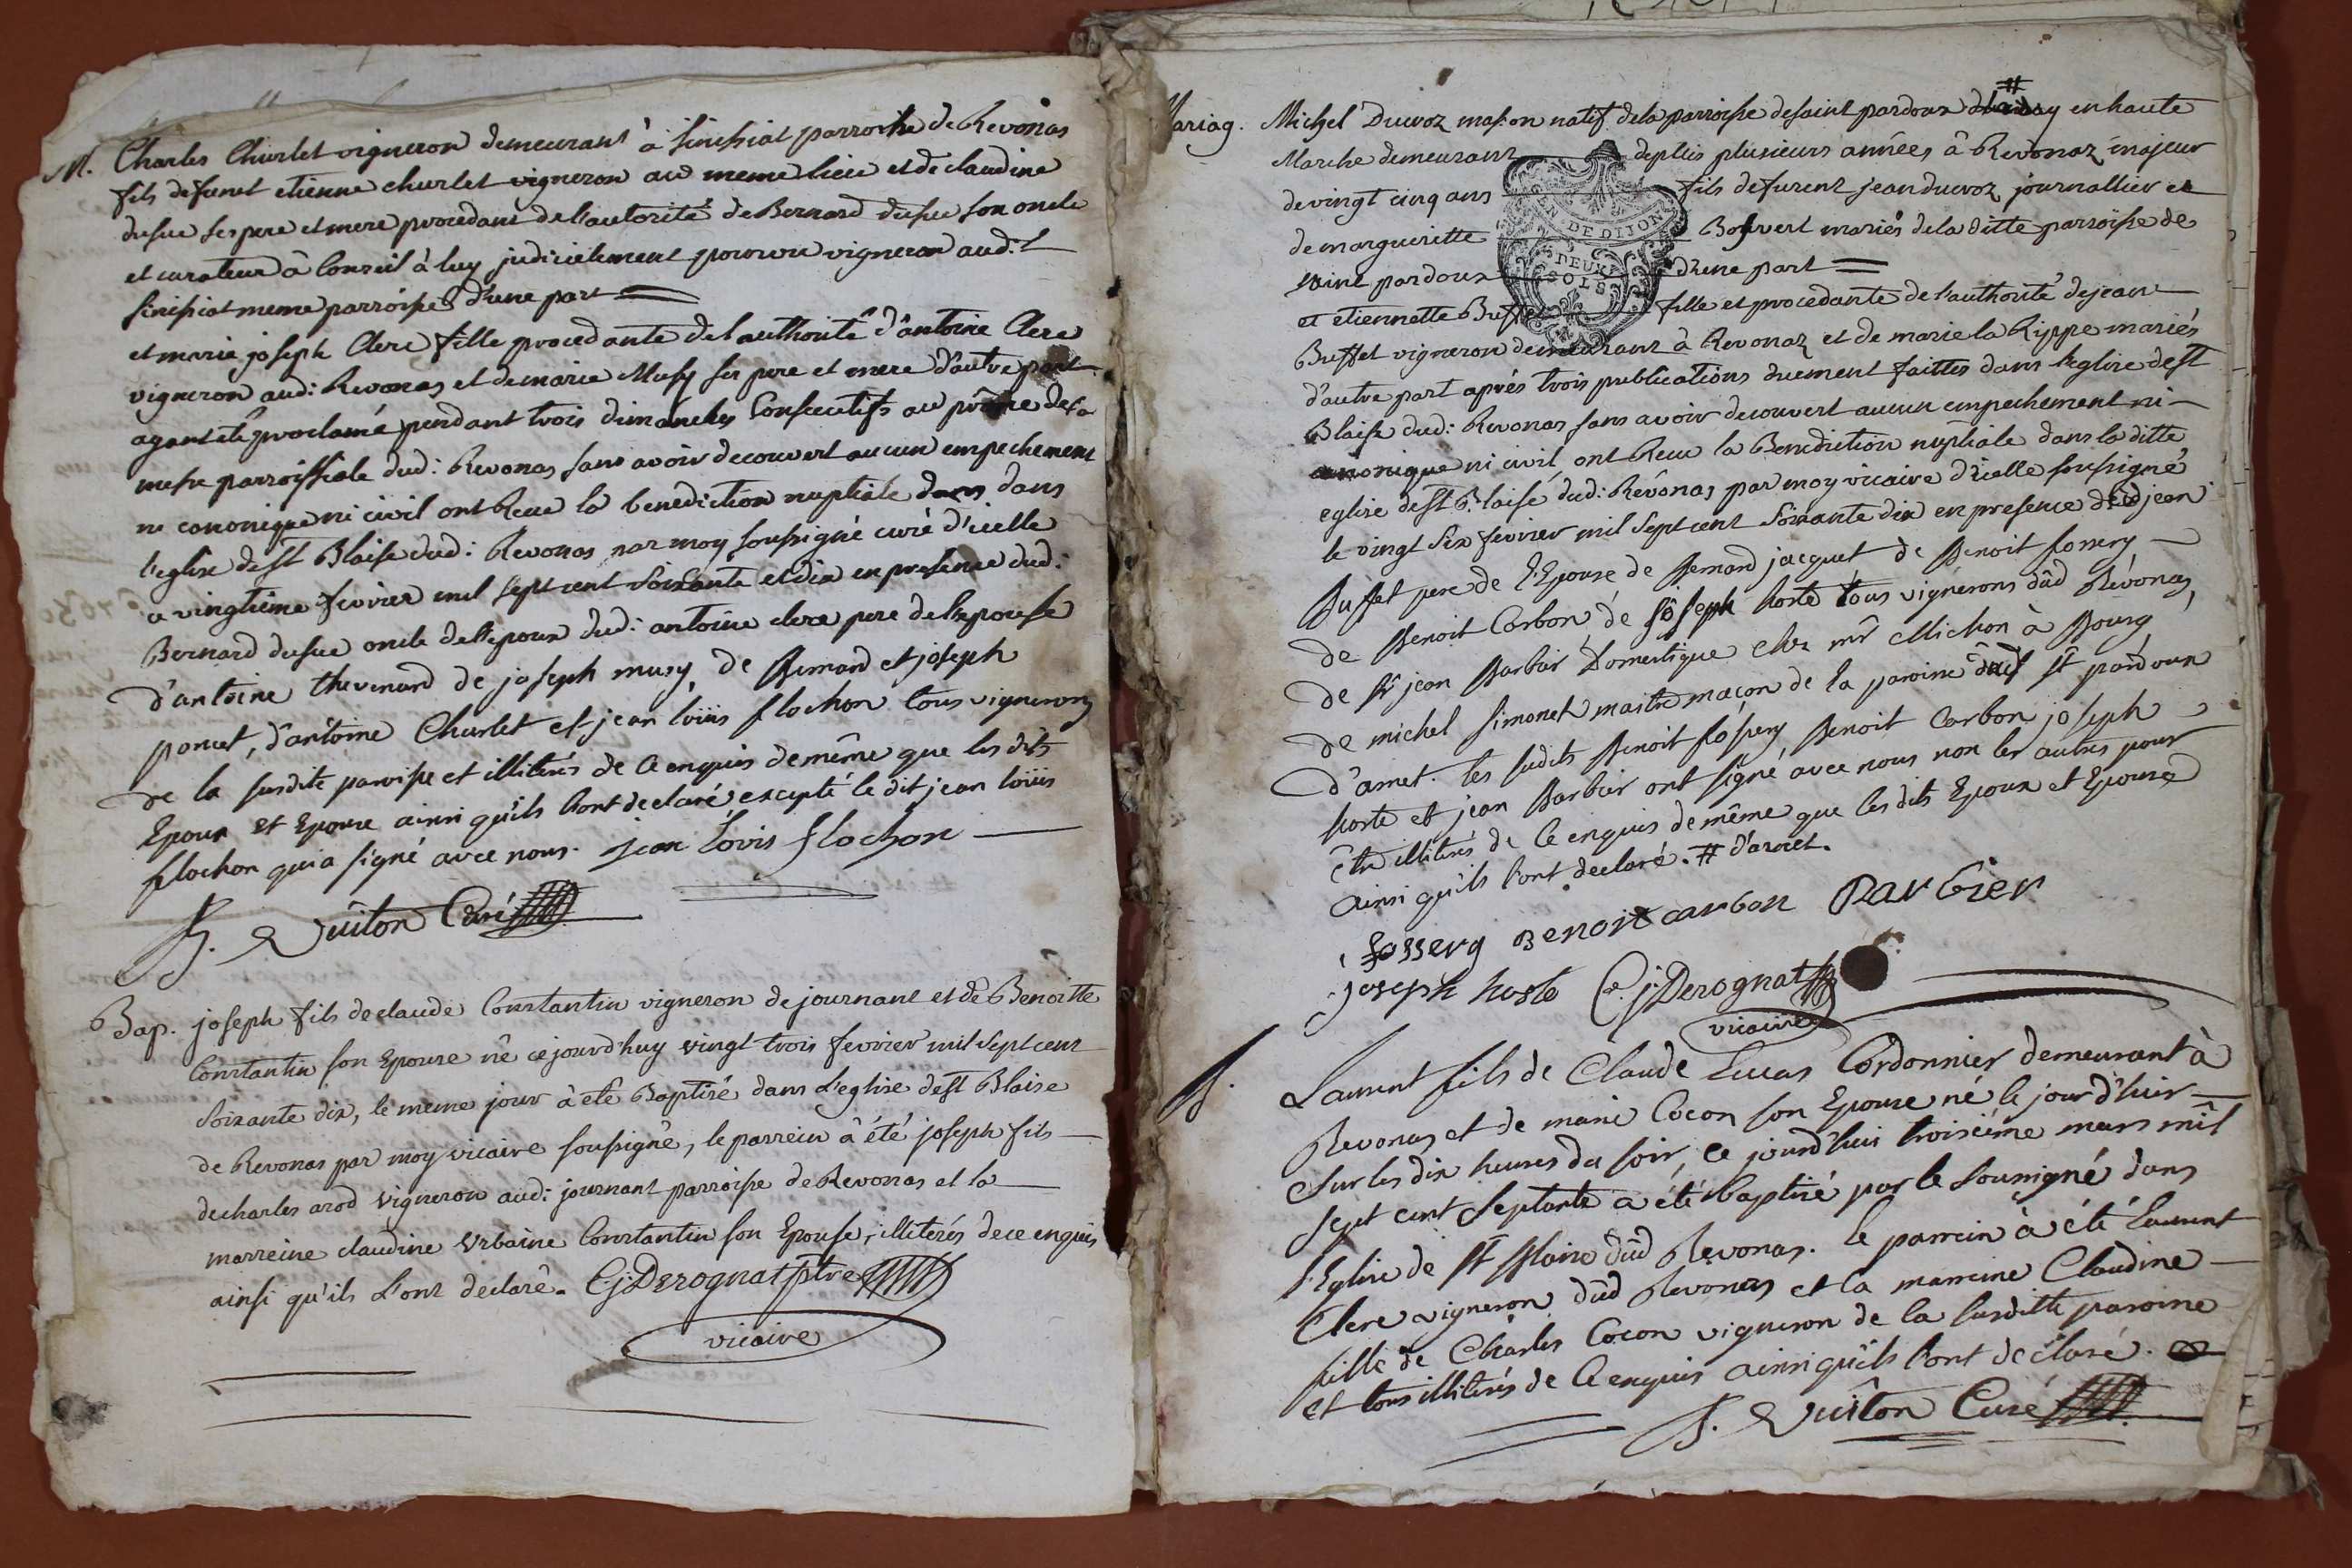 M. Charles Churlet vigneron demeurant à sinissiat parroisse de Revonas
fils defunct etienne churlet vigneron au meme lieu et de claudine
dusuc ses pere et mere procedant de l'autorité de Bernard dusuc son oncle
et curateur à Conseil à luy judicielement pourvu vigneron aud:t
sinissiat meme parroisse d'une part
et marie joseph Clerc fille procedante de l'authorité d'antoine Clerc
vigneron aud: Revonas et de marie Musy ses pere et mere d'autre part
ayant été proclamé pendant trois dimanches Consecutifs au prône de la
messe parroissiale dud: Revonas sans avoir decouvert aucun empechement
ni canonique ni civil ont Recu la benediction nuptiale dans dans
l'eglise de st Blaise dud: Revonas par moy soussigné curé d'icelle
ce vingtieme fevrier mil sept cent soixante et dix en presence dud:
Bernard dusuc oncle de l'epoux dud: antoine clerc pere de l'epouse
d'antoine thevenard de joseph musy, de Bernard et joseph
poncet, d'antoine Churlet et jean loüis flochon tous vignerons
de la susdite parroisse et illiterés de ce enquis de même que les dits
Epoux et Epouse ainsi qu'ils l'ont declaré excepté le dit jean loüis
flochon qui a signé avec nous. jean lovis flochon
J. Vuiton Curé
Bap. joseph fils de claude Constantin vigneron de journant et de Benoitte
Constantin son Epouse né cejourd'huy vingt trois fevrier mil sept cent
soixante dix, le meme jour à été Baptisé dans L'eglise de st Blaise
de Revonas par moy vicaire soussigné, le parrein à été joseph fils
de charles arod vigneron aud: journant parroisse de Revonas et la
marreine claudine Urbaine Constantin son Epouse, illiterés de ce enquis
ainsi qu'ils L'ont declaré. C j: Derognat ptre
vicaire
Mariag. Michel Ducroz masson natif de la parroisse de saint pardoux en haute
Marche demeurant depuis plusieurs années à Revonaz majeur
de vingt cinq ans fils de furent jean ducroz journallier et
de margueritte Bouvert mariés de la ditte parroisse de
saint pardoux d'une part
et etiennette Buffet fille et procedante de l'authorité de jean
Buffet vigneron demeurant à Revonaz et de marie la Rippe mariés
d'autre part après trois publications duement faittes dans l'eglise de st
Blaise dud: Revonas sans avoir decouvert aucun empechement ni
canonique ni civil, ont Recu la Benediction nuptiale dans la ditte
eglise de st Blaise dud: Revonas par moy vicaire d'icelle soussigné
le vingt six fevrier mil sept cent soixante dix en presence dud jean
Buffet pere de l'Epouse de Bernard jacquet de Benoit fossery
de Benoit Carbon de joseph hoste tous vignerons dûd Révonas,
de sr jean Barbier Domestique chez mr Michon à Bourg
de michel simonet maitre maçon de la paroisse dud st pardoux
d'arnet. les sudits Benoit fossery Benoit Carbon joseph
hoste et jean Barbier ont signé avec nous non les autres pour
être illiterés de ce enquis de même que les dits Epoux et Epouse
ainsi qu'ils l'ont declaré. # d'arnet.
fossery Benoit carbon Barbier
joseph hoste C. j: Derognat
vicaire
B. Laurent fils de Claude Lucas Cordonnier demeurant à
Revonas et de marie Cocon son Epouse né le jour d'hier
sur les dix heures du soir, ce jourd'hui troisième mars mil
sept cent septante a été baptisé par le soussigné dans
l'Eglise de st Blaise dûd Revonas. le parrein à été Laurent
Clerc vigneron dûd Revonas et la marreine Claudine
fille de Charles Cocon vigneron de la susditte paroisse
et tous illiterés de ce enquis ainsi qu'ils l'ont declaré.
J. Vuiton Curé
GEN DE DIJON
DEUX
SOLS